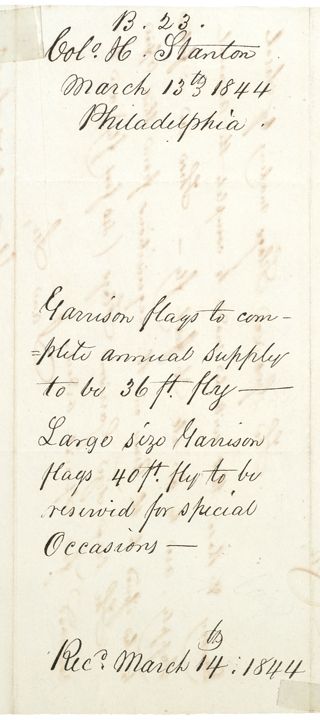 B. 23.
Colo. H. Stanton
March 13th 1844
Philadelphia.
Garrison flags to com-
=plete annual supply
to be 36 ft. fly—
Large size Garrison
flags 40 ft. fly to be
reserved for special
Occasions—
Recd. March 14th: 1844